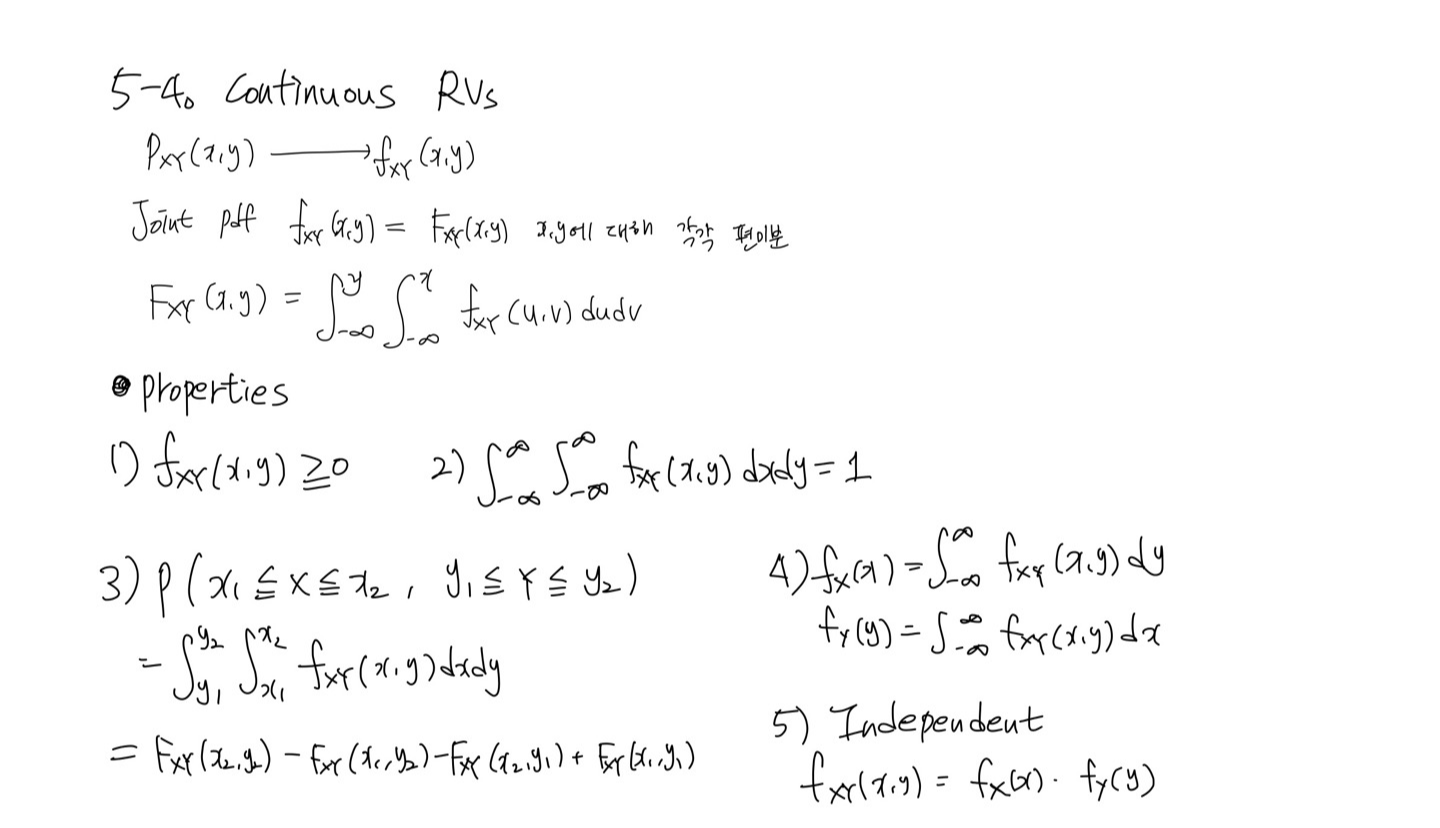 5-4. Continuous RVs
P_XY(x,y) → f_XY(x,y)
Joint pdf f_XY(x,y) = F_XY(x,y) x,y에 대해 각각 편미분
F_XY(x,y) = ∫_{-∞}^{y} ∫_{-∞}^{x} f_XY(u,v) dudv
● properties
1) f_XY(x,y) ≧ 0 2) ∫_{-∞}^{∞} ∫_{-∞}^{∞} f_XY(x,y) dxdy = 1
3) P(x₁ ≦ X ≦ x₂, y₁ ≦ Y ≦ y₂)
= ∫_{y₁}^{y₂} ∫_{x₁}^{x₂} f_XY(x,y) dxdy
= F_XY(x₂,y₂) - F_XY(x₁,y₂) - F_XY(x₂,y₁) + F_XY(x₁,y₁)
4) f_X(x) = ∫_{-∞}^{∞} f_XY(x,y) dy
f_Y(y) = ∫_{-∞}^{∞} f_XY(x,y) dx
5) Independent
f_XY(x,y) = f_X(x) · f_Y(y)